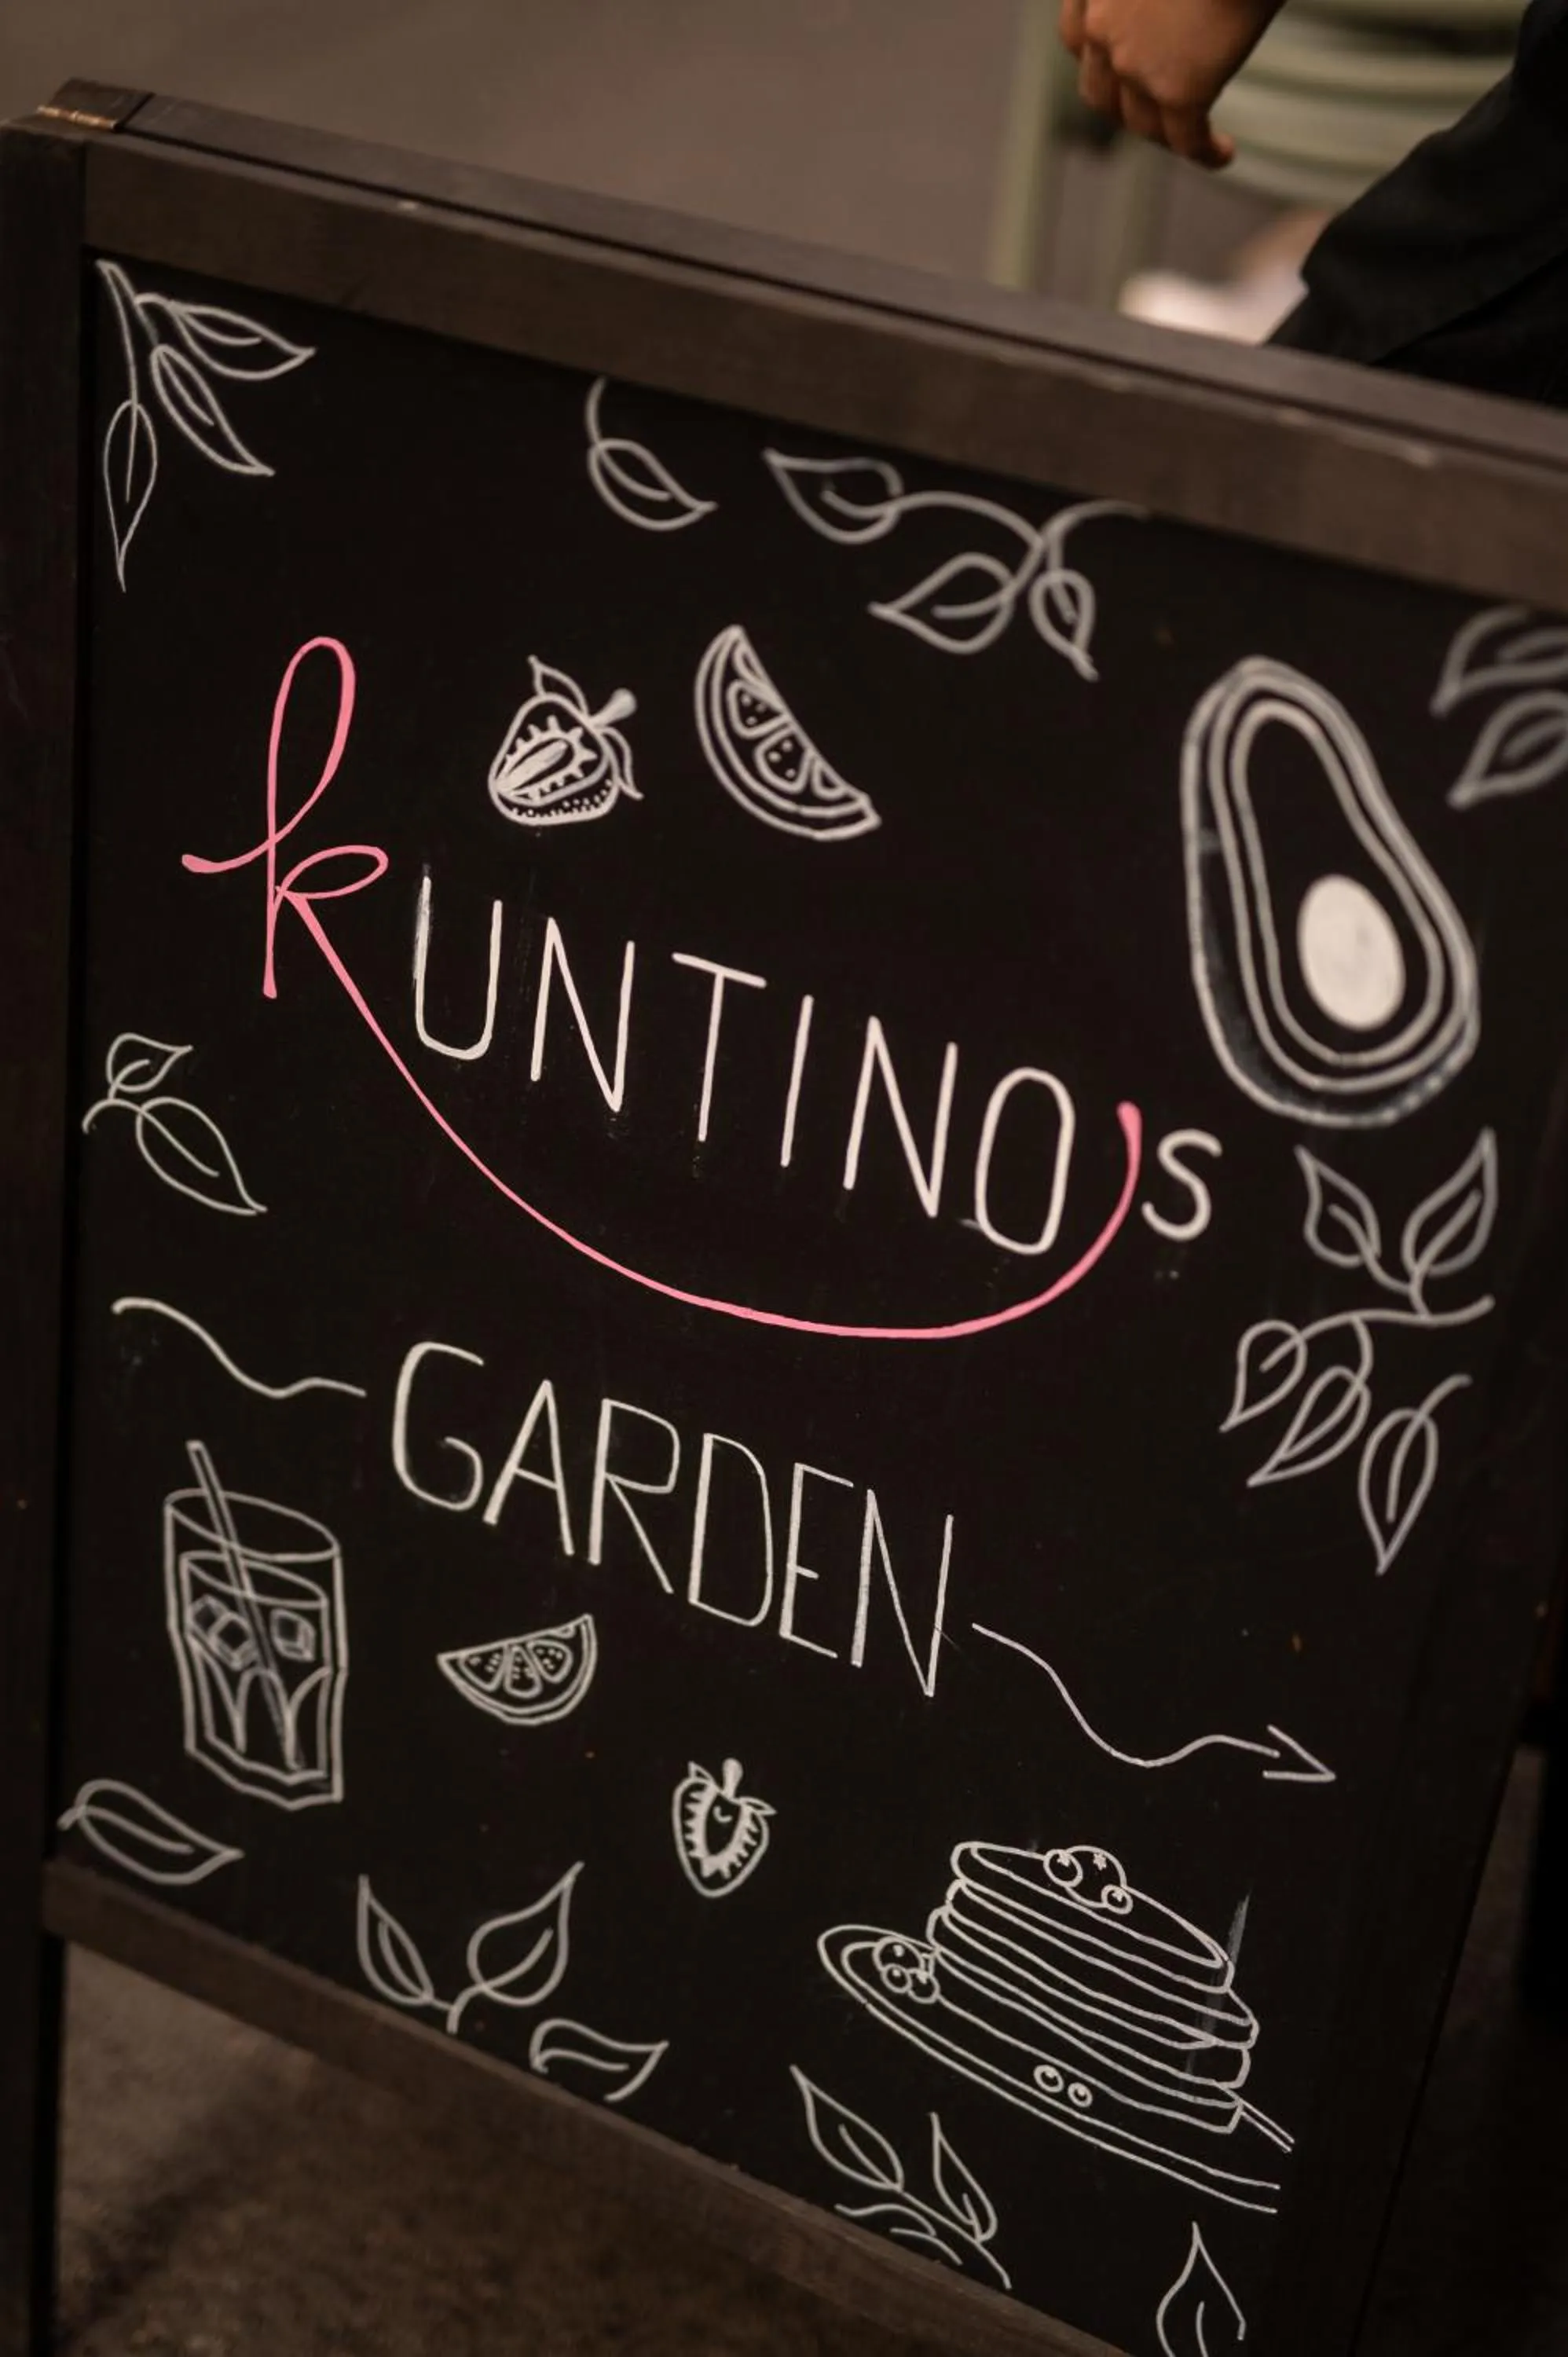 kUNTINO's
GARDEN